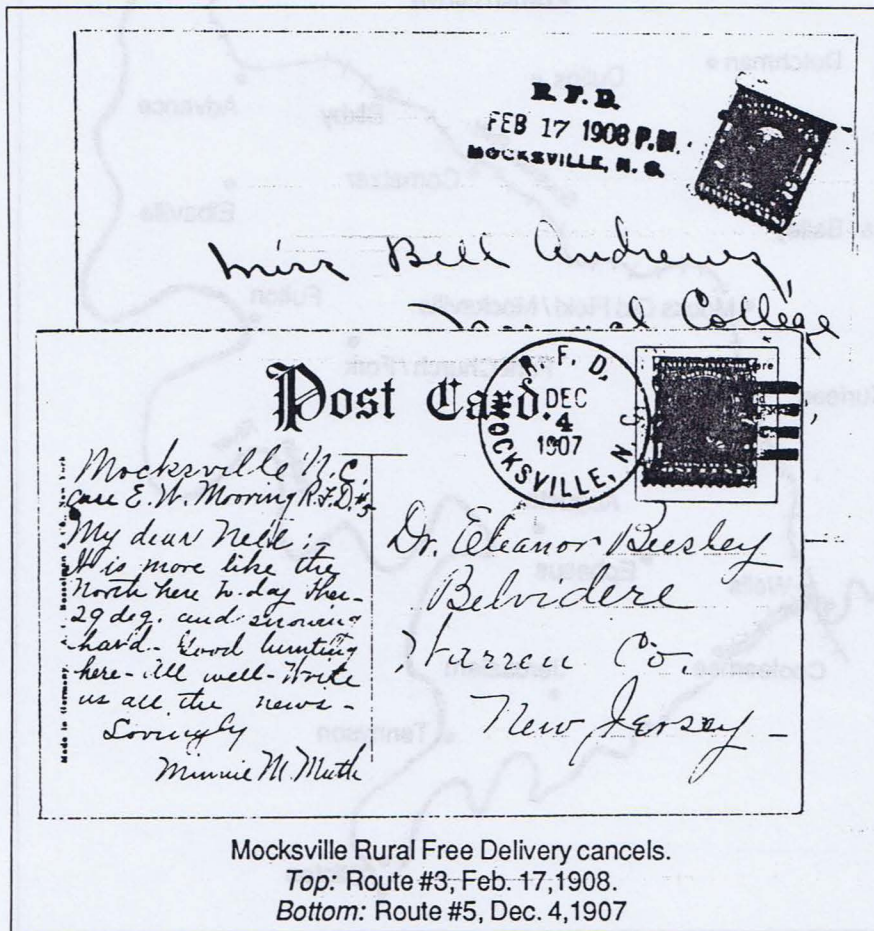 R. F. D.
FEB 17 1908 P.M.
MOCKSVILLE, N. C.
Miss Bell Andrews
College
Post Card.
R. F. D.
DEC
4
1907
MOCKSVILLE, N. C.
Mocksville N.C.
care E. W. Mooring R.F.D. #5
My dear Nell:
It is more like the
North here to-day Ther-
29 deg. and snowing
hard - Good hunting
here - All well - Write
us all the news -
Lovingly
Minnie M. Muth
Made in Germany.
Dr. Eleanor Beesley
Belvidere
Warren Co.
New Jersey
Mocksville Rural Free Delivery cancels.
Top: Route #3, Feb. 17,1908.
Bottom: Route #5, Dec. 4,1907